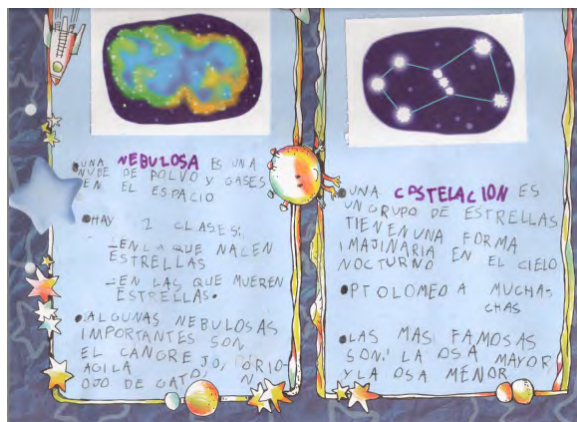 UNA NEBULOSA ES UNA
NUBE DE POLVO Y GASES
EN EL ESPACIO
HAY 2 CLASES:
-EN LA QUE NACEN
ESTRELLAS
-EN LAS QUE MUEREN
ESTRELLAS.
ALGUNAS NEBULOSAS
IMPORTANTES SON
EL CANGREJO, ORIO-
AGILA N
OJO DE GATO,
UNA COSTELACION ES
UN GRUPO DE ESTRELLAS
TIENEN UNA FORMA
IMAJINARIA EN EL CIELO
NOCTURNO
PTOLOMEO A MUCHAS-
CHAS
LAS MAS FAMOSAS
SON: LA OSA MAYOR
Y LA OSA MENOR